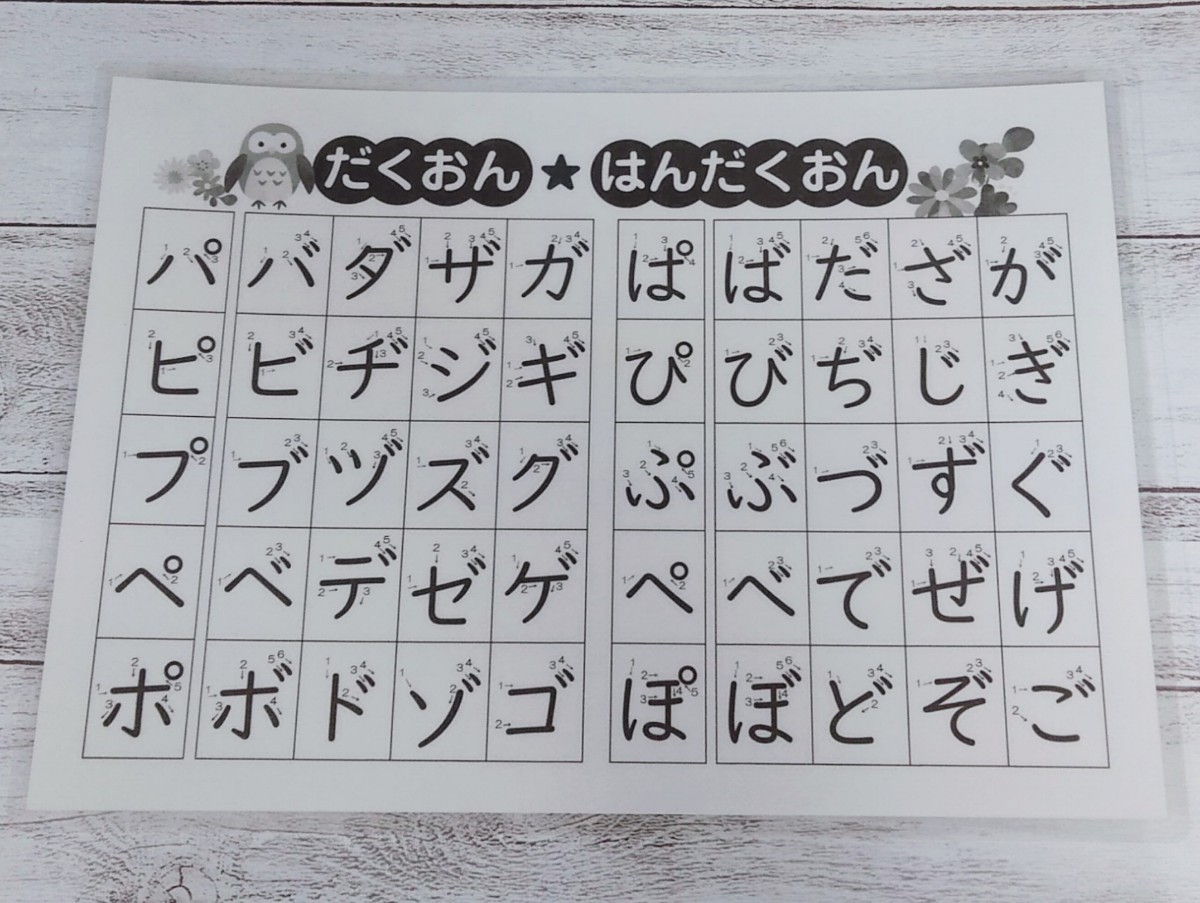 だくおん★はんだくおん
パ バ ダ ザ ガ ぱ ば だ ざ が
ピ ビ ヂ ジ ギ ぴ び ぢ じ ぎ
プ ブ ヅ ズ グ ぷ ぶ づ ず ぐ
ペ ベ デ ゼ ゲ ぺ べ で ぜ げ
ポ ボ ド ゾ ゴ ぽ ぼ ど ぞ ご